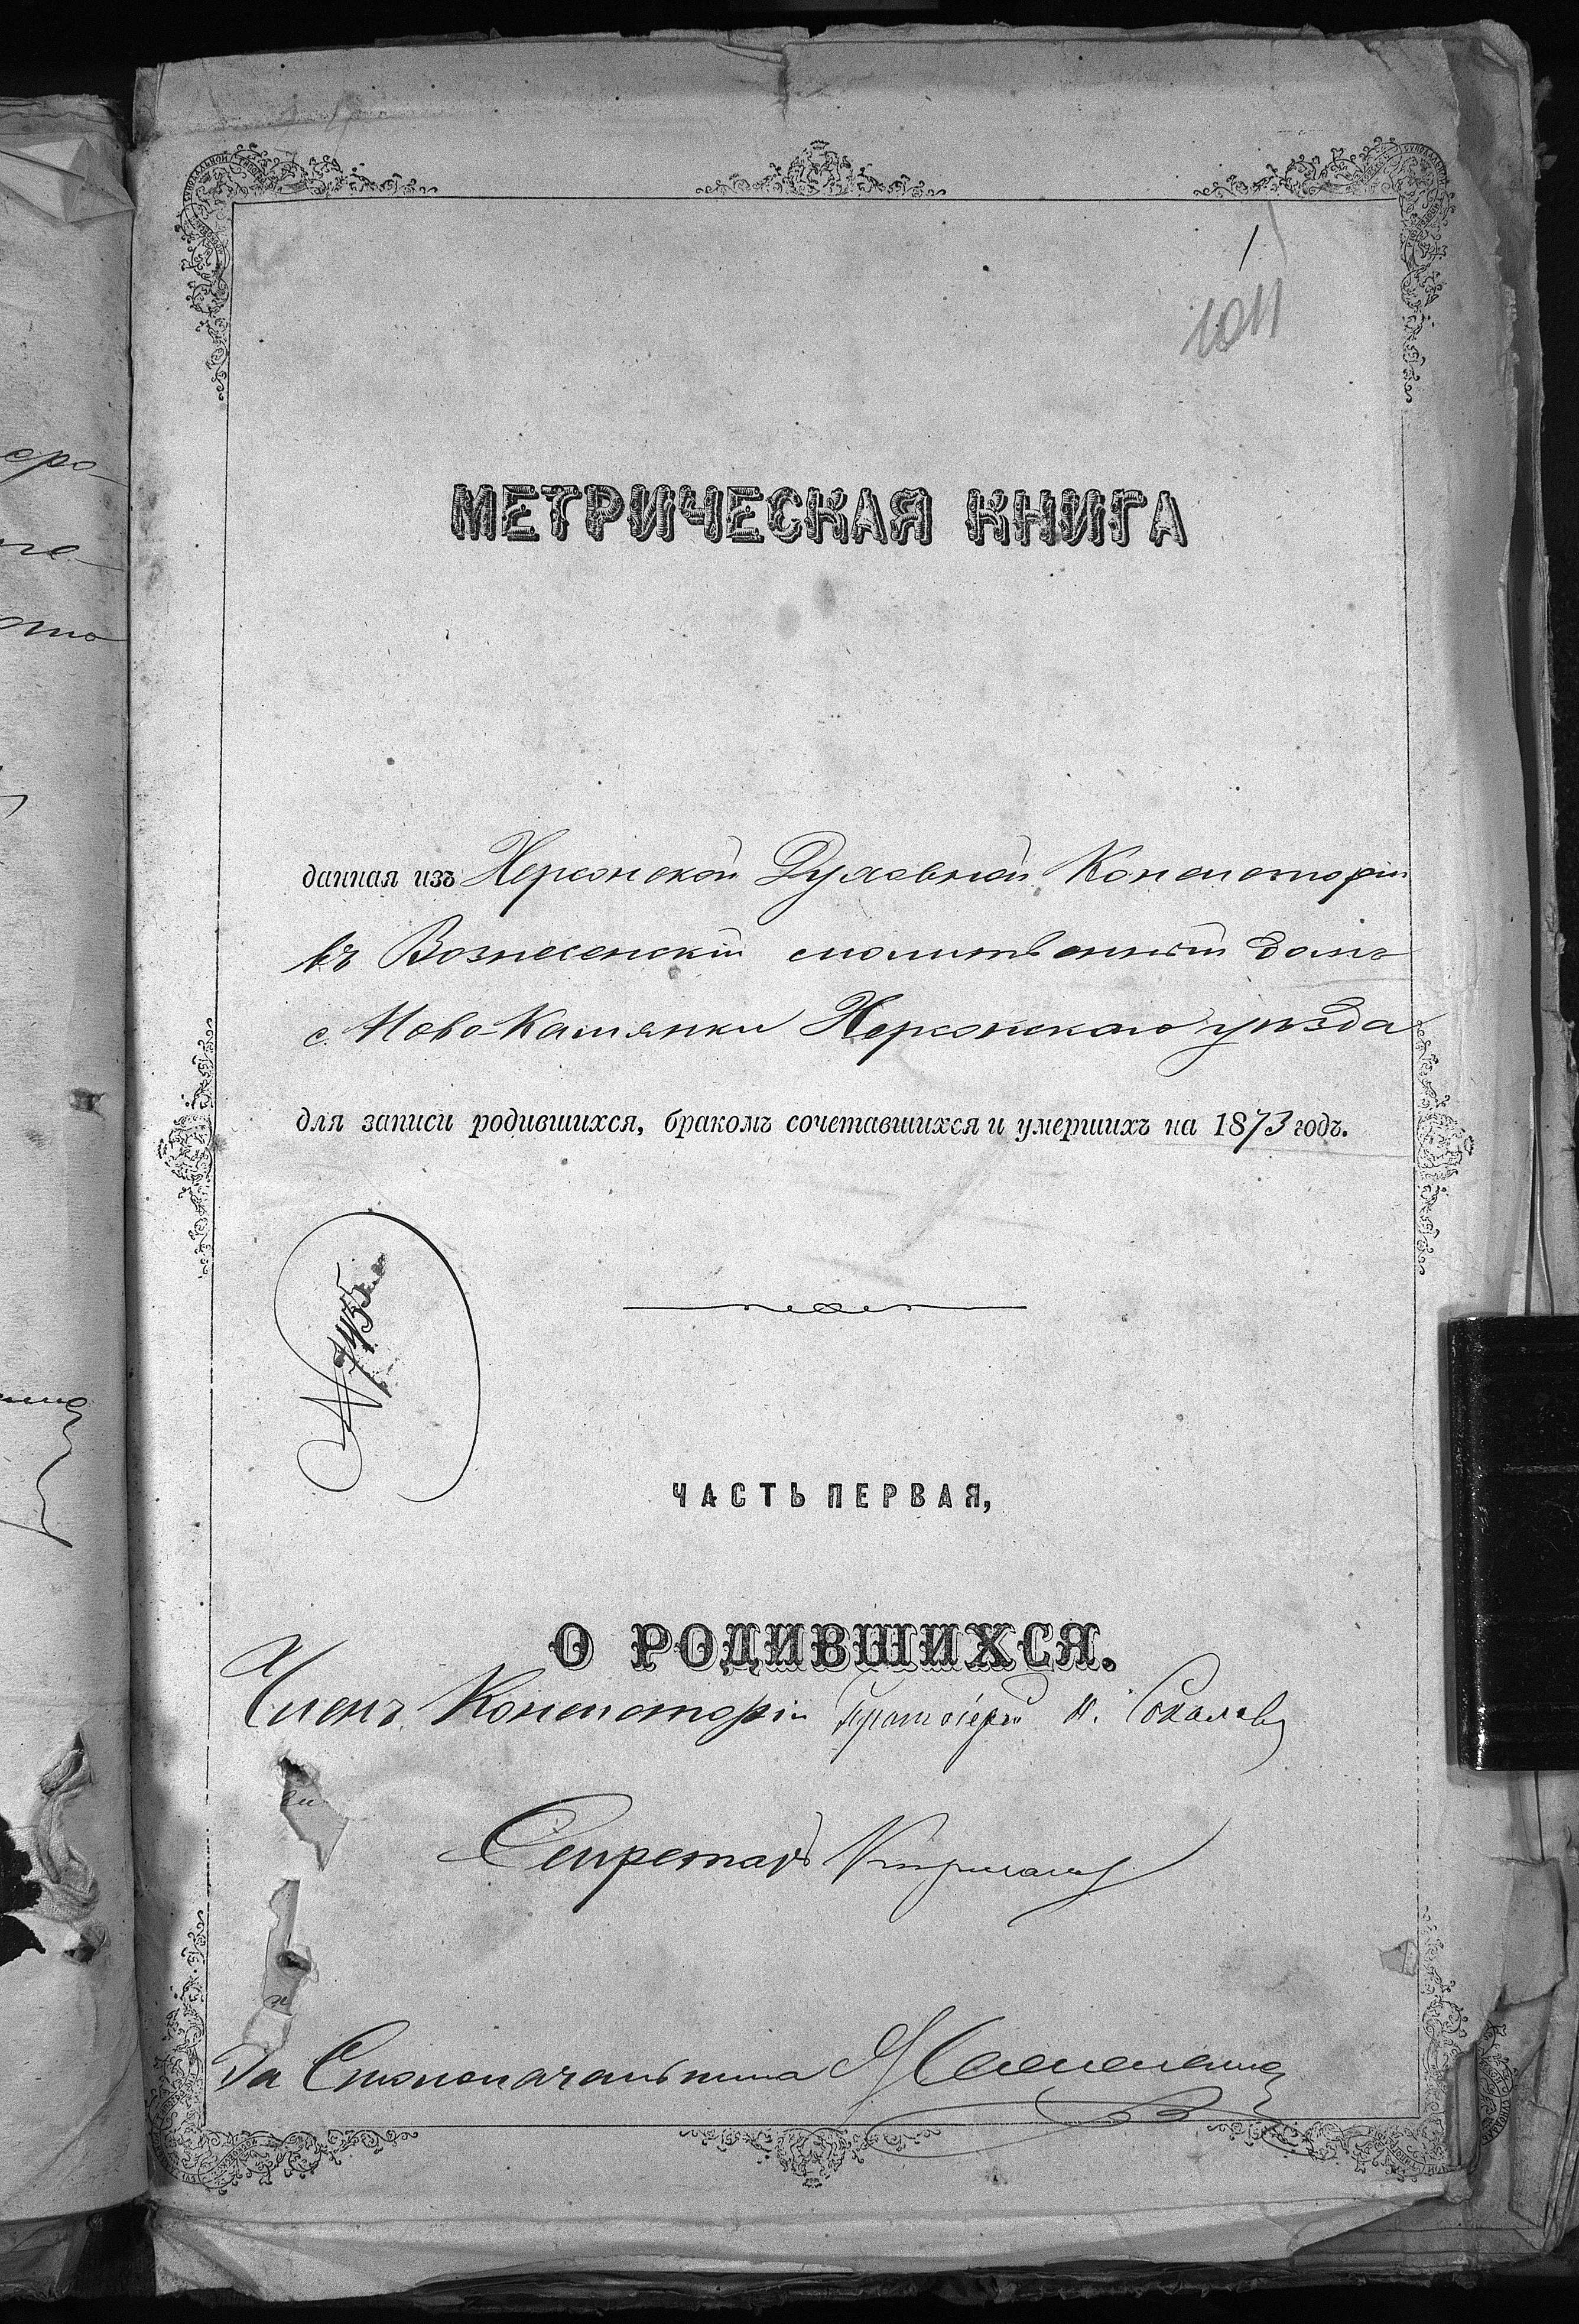 1011
МЕТРИЧЕСКАЯ КНИГА
данная изъ Херсонской Духовной Консисторіи
въ Вознесенскій молитвенный домъ
с. Ново-Камянки Херсонскаго уѣзда
для записи родившихся, бракомъ сочетавшихся и умершихъ на 1873 годъ.
ЧАСТЬ ПЕРВАЯ,
О РОДИВШИХСЯ.
Членъ Консисторіи Протоіерей Соколовъ
Секретарь
За Столоначальника